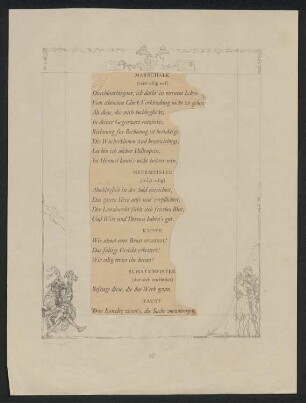 MARSCHALK
(tritt eilig auf)
Durchlauchtigster, ich dacht' in meinem Leben
Vom schönsten Glück Verkündung nicht zu geben
Als diese, die mich hochbeglückt,
In deiner Gegenwart entzückt:
Rechnung für Rechnung ist berichtigt,
Die Wucherklauen sind beschwichtigt,
Los bin ich solcher Höllenpein;
Im Himmel kann's nicht heitrer sein.
HEERMEISTER
(folgt eilig)
Abschläglich ist der Sold entrichtet,
Das ganze Heer aufs neu' verpflichtet,
Der Landsknecht fühlt sich frisches Blut,
Und Wirt und Dirnen haben's gut.
KAISER
Wie atmet eure Brust erweitert!
Das faltige Gesicht erheitert!
Wie eilig tretet ihr heran!
SCHATZMEISTER
Befrage diese, die das Werk getan.
FAUST
Dem Kanzler ziemt's, die Sache vorzutragen.